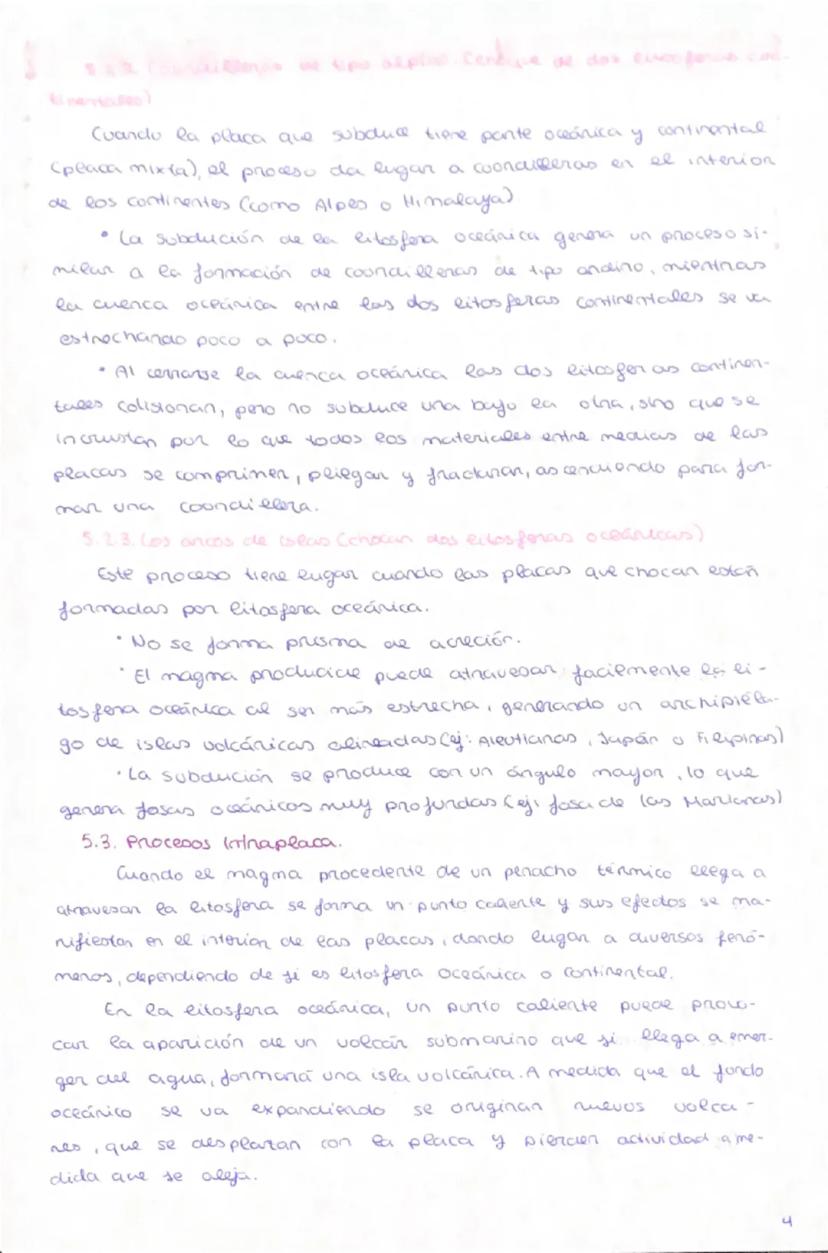 5.2.2. Coordilleras de tipo alpino (choque de dos litosferas con-
tinentales)
Cuando la placa que subduce tiene parte oceánica y continental
(placa mixta), el proceso da lugar a coordilleras en el interior
de los continentes (como Alpes o Himalaya)
• La subdución de la litosfera oceánica genera un proceso si-
milar a la formación de coordilleras de tipo andino, mientras
la cuenca oceánica entre las dos litosferas continentales se va
estrechando poco a poco.
• Al cerrarse la cuenca oceánica las dos litosferas continen-
tales colisionan, pero no subduce una bajo la otra, sino que se
incrustan por lo que todos los materiales entre medias de las
placas se comprimen, pliegan y fracturan, ascendiendo para for-
mar una coordillera.
5.2.3. Los arcos de islas (chocan dos litosferas oceánicas)
Este proceso tiene lugar cuando las placas que chocan están
formadas por litosfera oceánica.
• No se forma prisma de acreción.
• El magma producide puede atravesar facilmente la li-
tosfera oceánica al ser más estrecha, generando un archipiéla-
go de islas volcánicas alineadas (ej: Aleutianas, Japón o Filipinas)
• La subdución se produce con un ángulo mayor, lo que
genera fosas oceánicos muy profundas (ej: fosa de las Marianas)
5.3. Procesos intraplaca.
Cuando el magma procedente de un penacho térmico llega a
atravesar la litosfera se forma un punto caliente y sus efectos se ma-
nifiestan en el interior de las placas, dando lugar a diversos fenó-
menos, dependiendo de si es litosfera oceánica o continental.
En la litosfera oceánica, un punto caliente puede provo-
car la aparición de un volcán submarino que si llega a emer-
ger del agua, formará una isla volcánica. A medida que el fondo
oceánico se va expandiendo se originan nuevos volca-
nes, que se desplazan con la placa y pierden actividad a me-
dida que se aleja.
4